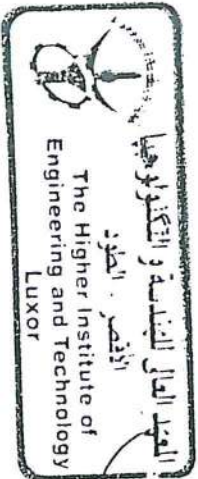 المعهد العالي للهندسة و التكنولوجيا
الأقصر . الطود
The Higher Institute of
Engineering and Technology
Luxor